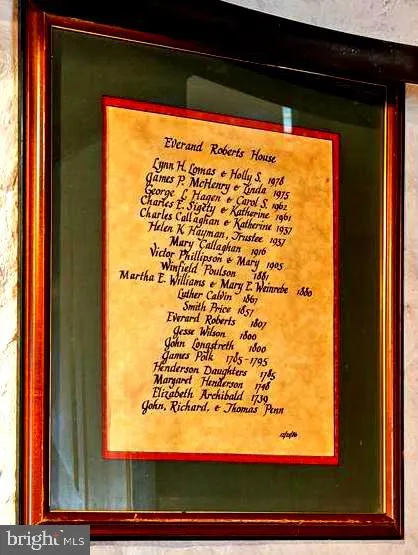 Everand Roberts House
Lynn H. Lomas & Holly S. 1978
James P. McHenry & Linda 1975
George L. Hagen & Carol S. 1962
Charles E. Sigety & Katherine 1961
Charles Callaghan & Katherine 1937
Helen K Hayman, Trustee 1937
Mary Callaghan 1916
Victor Phillipson & Mary 1905
Winfield Poulson 1881
Martha E. Williams & Mary E. Weinrebe 1880
Luther Calvin 1867
Smith Price 1857
Everard Roberts 1807
Jesse Wilson 1800
John Longstreth 1800
James Polk 1785-1795
Henderson Daughters 1785
Margaret Henderson 1748
Elizabeth Archibald 1739
John, Richard, & Thomas Penn
bright MLS